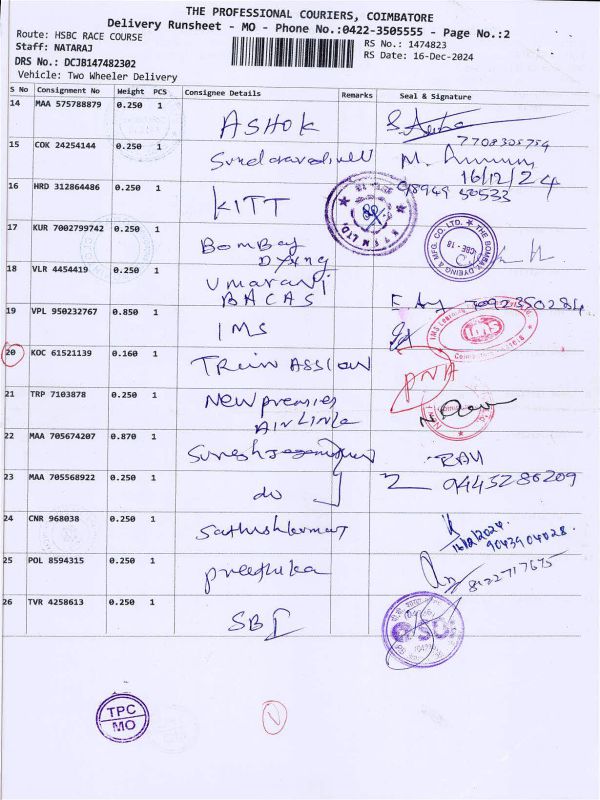 THE PROFESSIONAL COURIERS, COIMBATORE
Delivery Runsheet - MO - Phone No.:0422-3505555 - Page No.:2
Route: HSBC RACE COURSE
Staff: NATARAJ
DRS No.: DCJB147482302
Vehicle: Two Wheeler Delivery
RS No.: 1474823
RS Date: 16-Dec-2024
S No Consignment No Weight PCS Consignee Details Remarks Seal & Signature
14 MAA 575788879 0.250 1 ASHOK
7708305754
15 COK 24254144 0.250 1
16/12/24
16 HRD 312864486 0.250 1 KITT
17 KUR 7002799742 0.250 1 BOMBAY
DYING
THE BOMBAY DYEING & MFG. CO. LTD.
CBE-18
18 VLR 4454419 0.250 1 Umarani
BACAS
19 VPL 950232767 0.850 1 IMS
IMS
20 KOC 61521139 0.160 1
21 TRP 7103878 0.250 1 New premier
AIR Line
22 MAA 705674207 0.870 1
23 MAA 705568922 0.250 1 do
9445286209
24 CNR 968038 0.250 1 Sathishkumar
16/12/2024.
9043904028.
25 POL 8594315 0.250 1 preethika
8122717675
26 TVR 4258613 0.250 1 SBI
TPC
MO